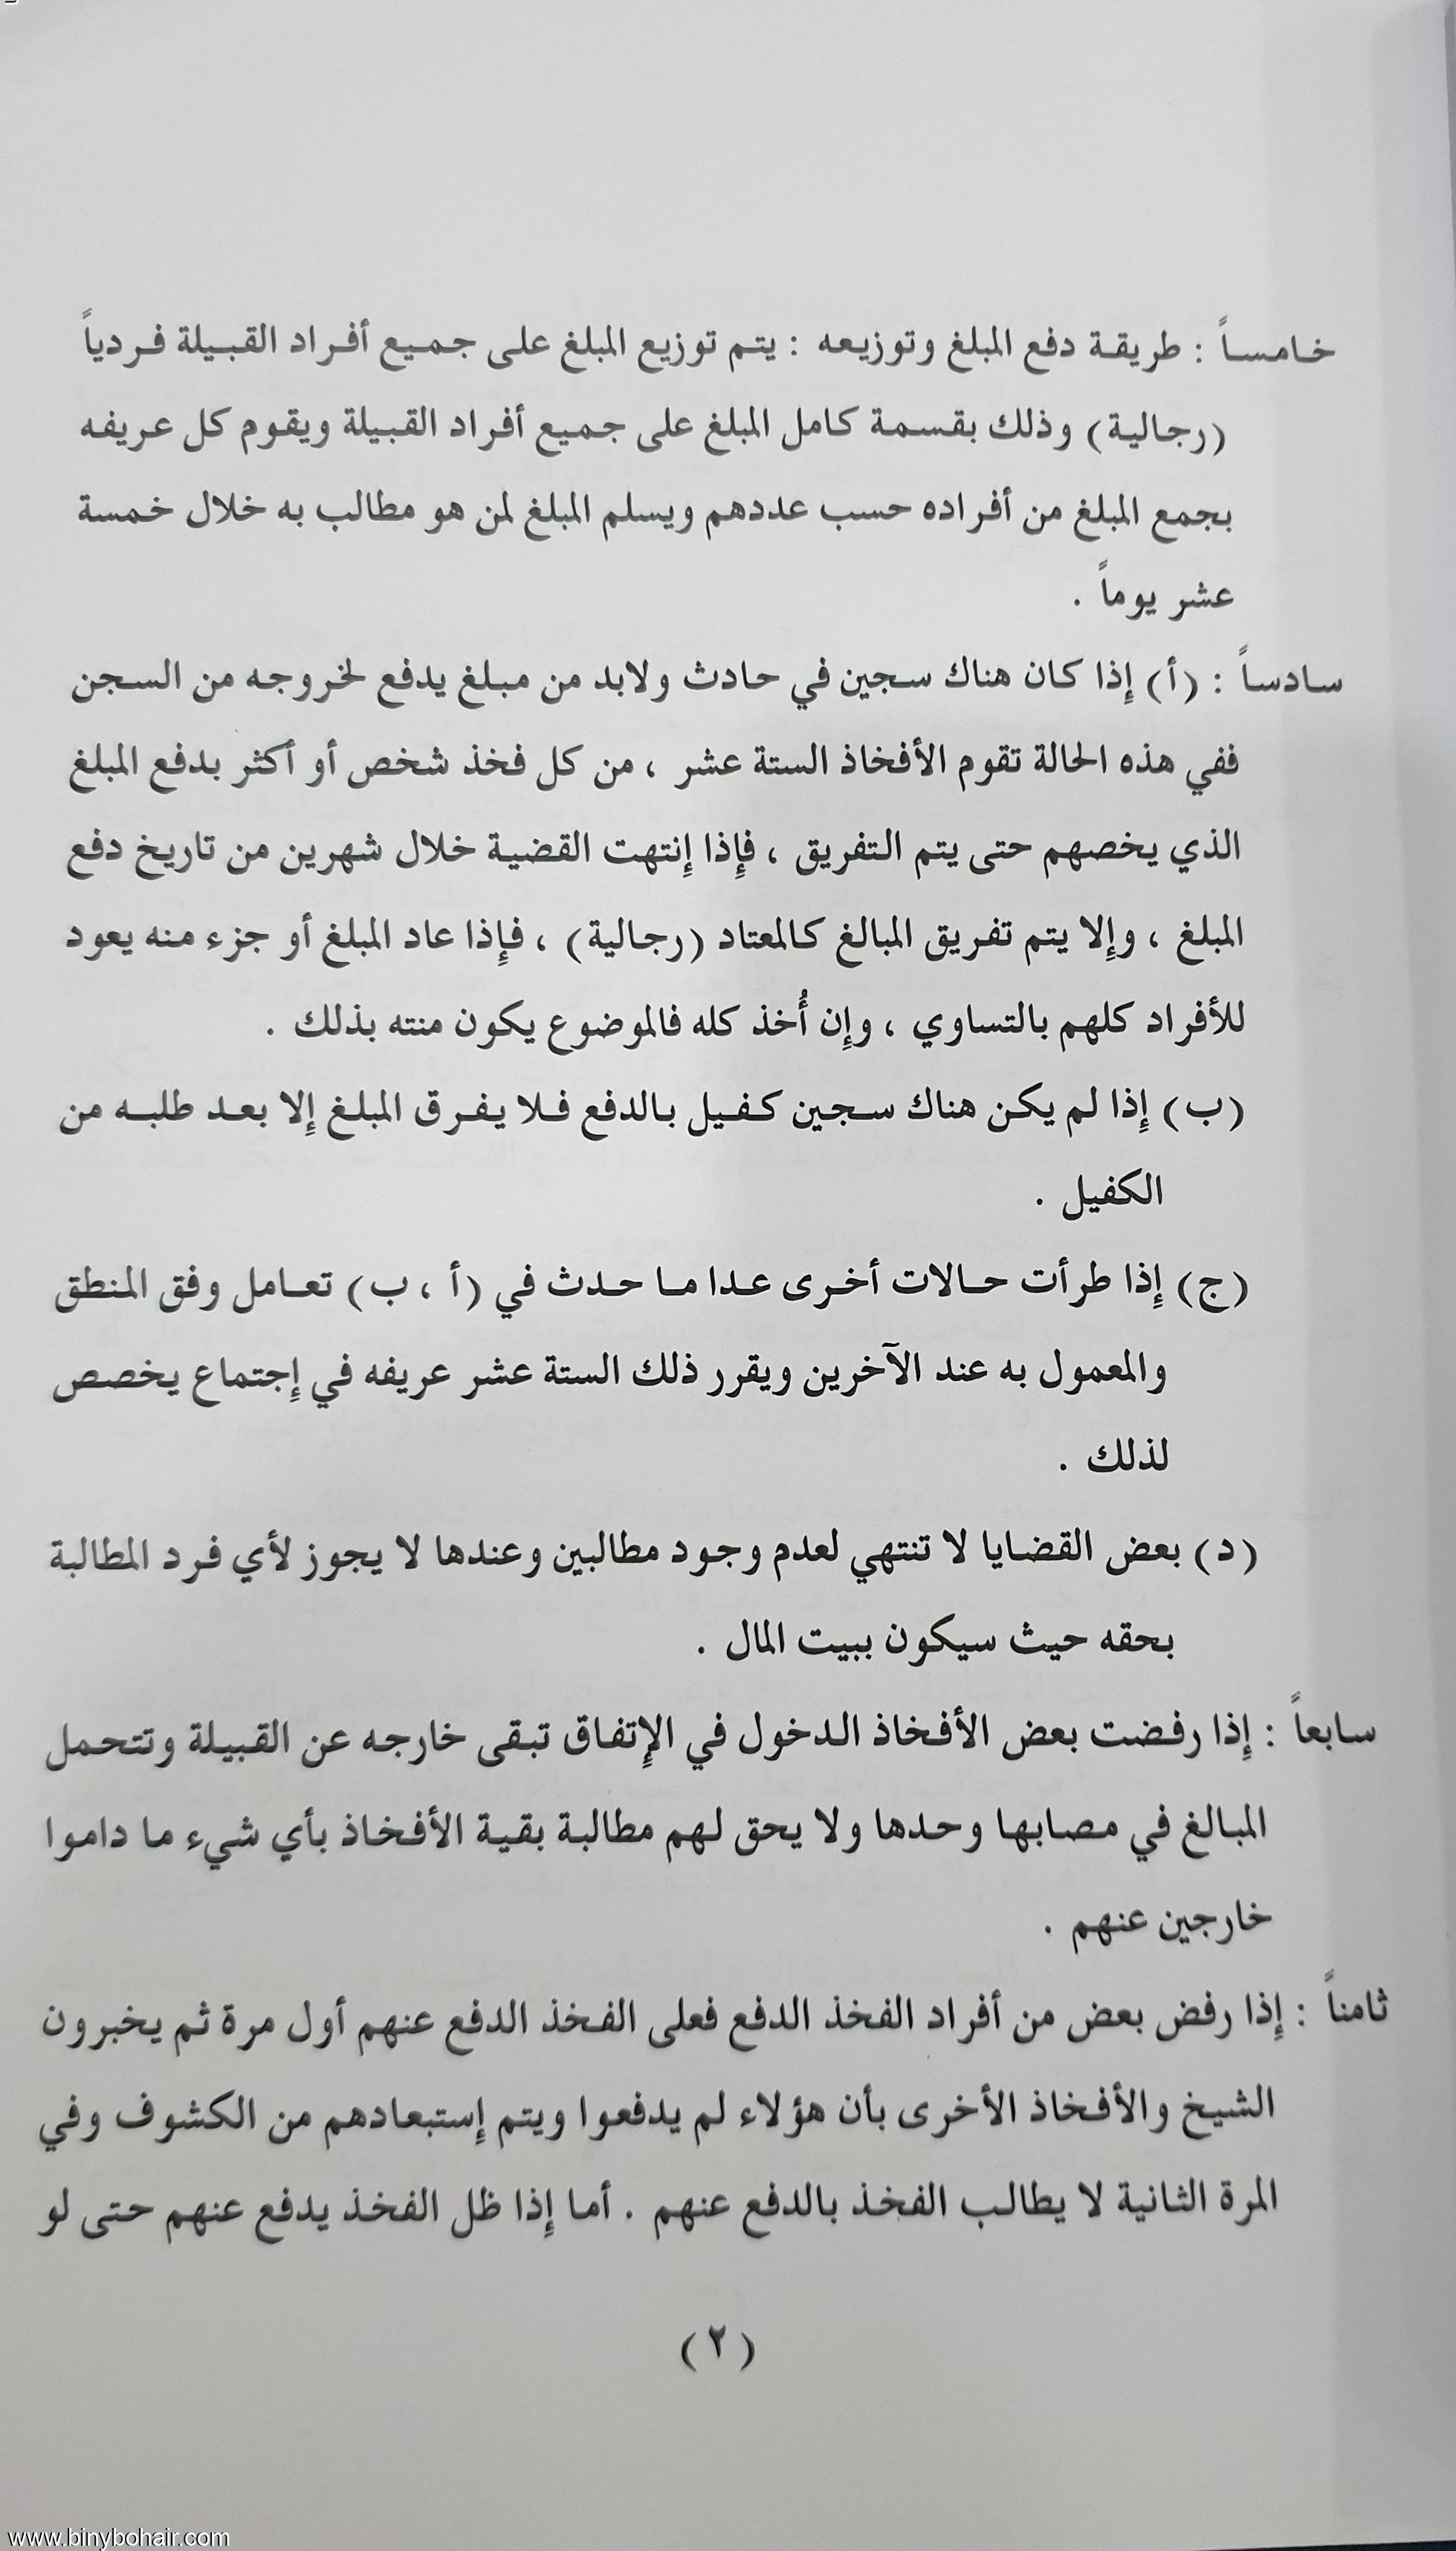 خامساً : طريقة دفع المبلغ وتوزيعه : يتم توزيع المبلغ على جميع أفراد القبيلة فردياً
(رجالية) وذلك بقسمة كامل المبلغ على جميع أفراد القبيلة ويقوم كل عريفه
بجمع المبلغ من أفراده حسب عددهم ويسلم المبلغ لمن هو مطالب به خلال خمسة
عشر يوماً .
سادساً : (أ) إذا كان هناك سجين في حادث ولابد من مبلغ يدفع لخروجه من السجن
ففي هذه الحالة تقوم الأفخاذ الستة عشر ، من كل فخذ شخص أو أكثر بدفع المبلغ
الذي يخصهم حتى يتم التفريق ، فإذا إنتهت القضية خلال شهرين من تاريخ دفع
المبلغ ، وإلا يتم تفريق المبالغ كالمعتاد (رجالية) ، فإذا عاد المبلغ أو جزء منه يعود
للأفراد كلهم بالتساوي ، وإن أُخذ كله فالموضوع يكون منته بذلك .
(ب) إذا لم يكن هناك سجين كفيل بالدفع فلا يفرق المبلغ إلا بعد طلبه من
الكفيل .
(ج) إذا طرأت حالات أخرى عدا ما حدث في (أ ، ب) تعامل وفق المنطق
والمعمول به عند الآخرين ويقرر ذلك الستة عشر عريفه في إجتماع يخصص
لذلك .
(د) بعض القضايا لا تنتهي لعدم وجود مطالبين وعندها لا يجوز لأي فرد المطالبة
بحقه حيث سيكون ببيت المال .
سابعاً : إذا رفضت بعض الأفخاذ الدخول في الإتفاق تبقى خارجه عن القبيلة وتتحمل
المبالغ في مصابها وحدها ولا يحق لهم مطالبة بقية الأفخاذ بأي شيء ما داموا
خارجين عنهم .
ثامناً : إذا رفض بعض من أفراد الفخذ الدفع فعلى الفخذ الدفع عنهم أول مرة ثم يخبرون
الشيخ والأفخاذ الأخرى بأن هؤلاء لم يدفعوا ويتم إستبعادهم من الكشوف وفي
المرة الثانية لا يطالب الفخذ بالدفع عنهم . أما إذا ظل الفخذ يدفع عنهم حتى لو
(٢)
www.binybohair.com